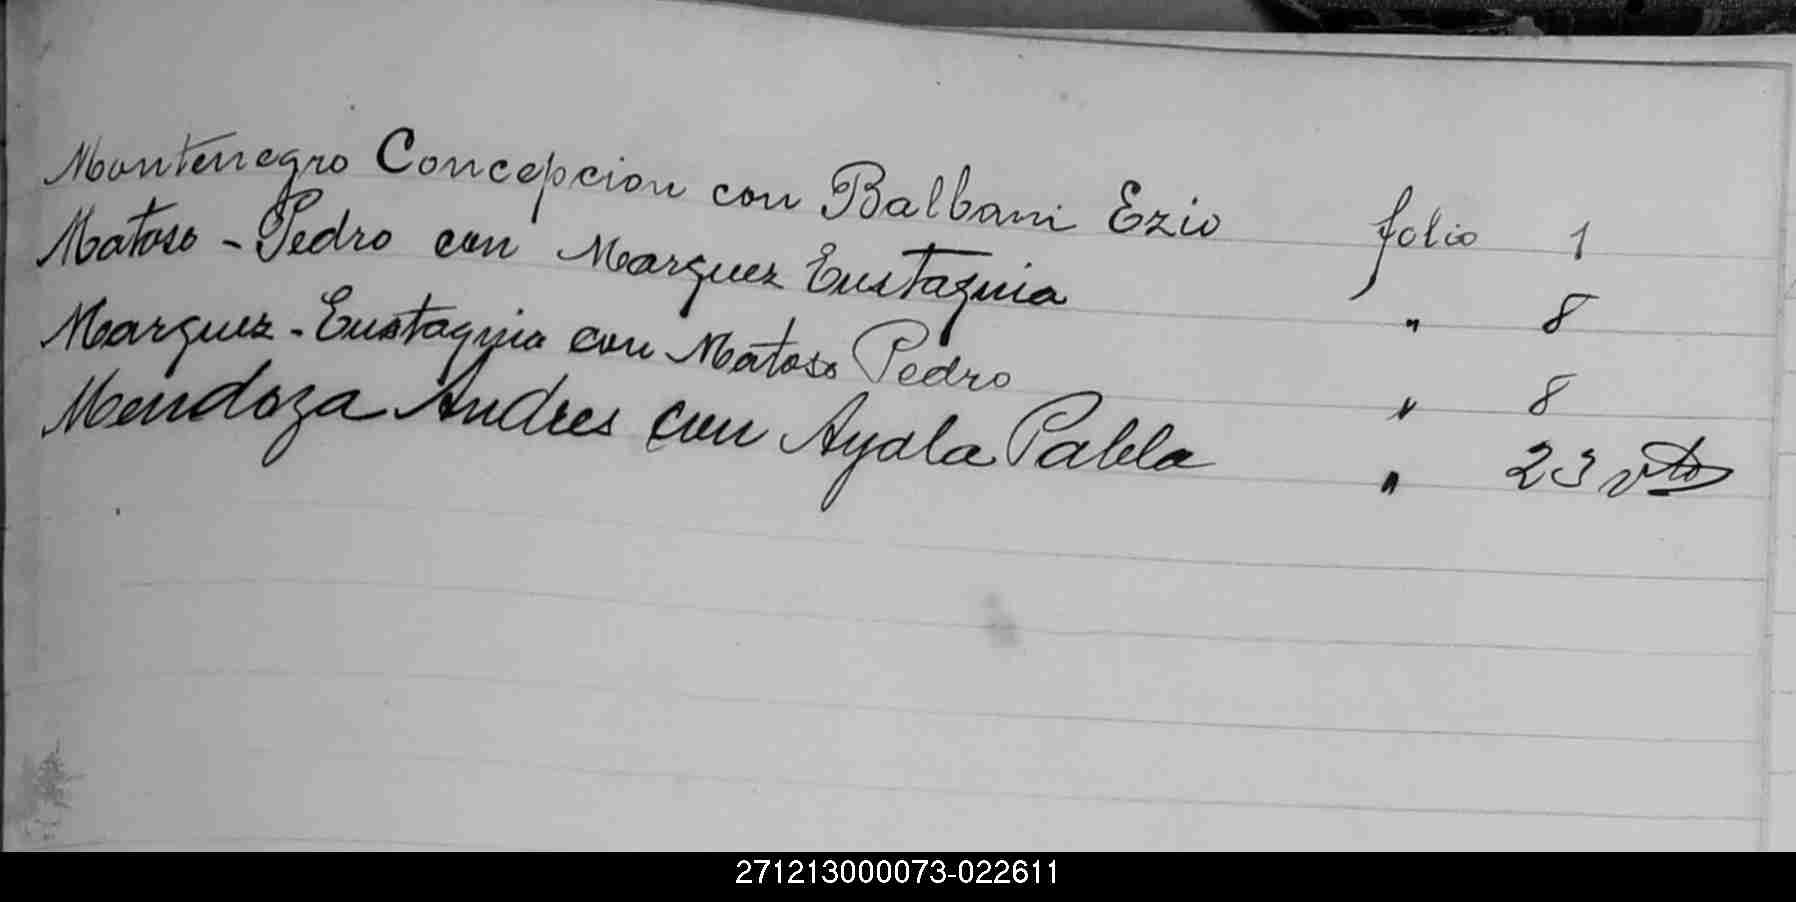 Montenegro Concepcion con Balbani Ezio folio 1
Matoso - Pedro con Marquez Eustaquia " 8
Marquez - Eustaquia con Matoso Pedro " 8
Mendoza Andres con Ayala Pabla " 23 vto
271213000073-022611